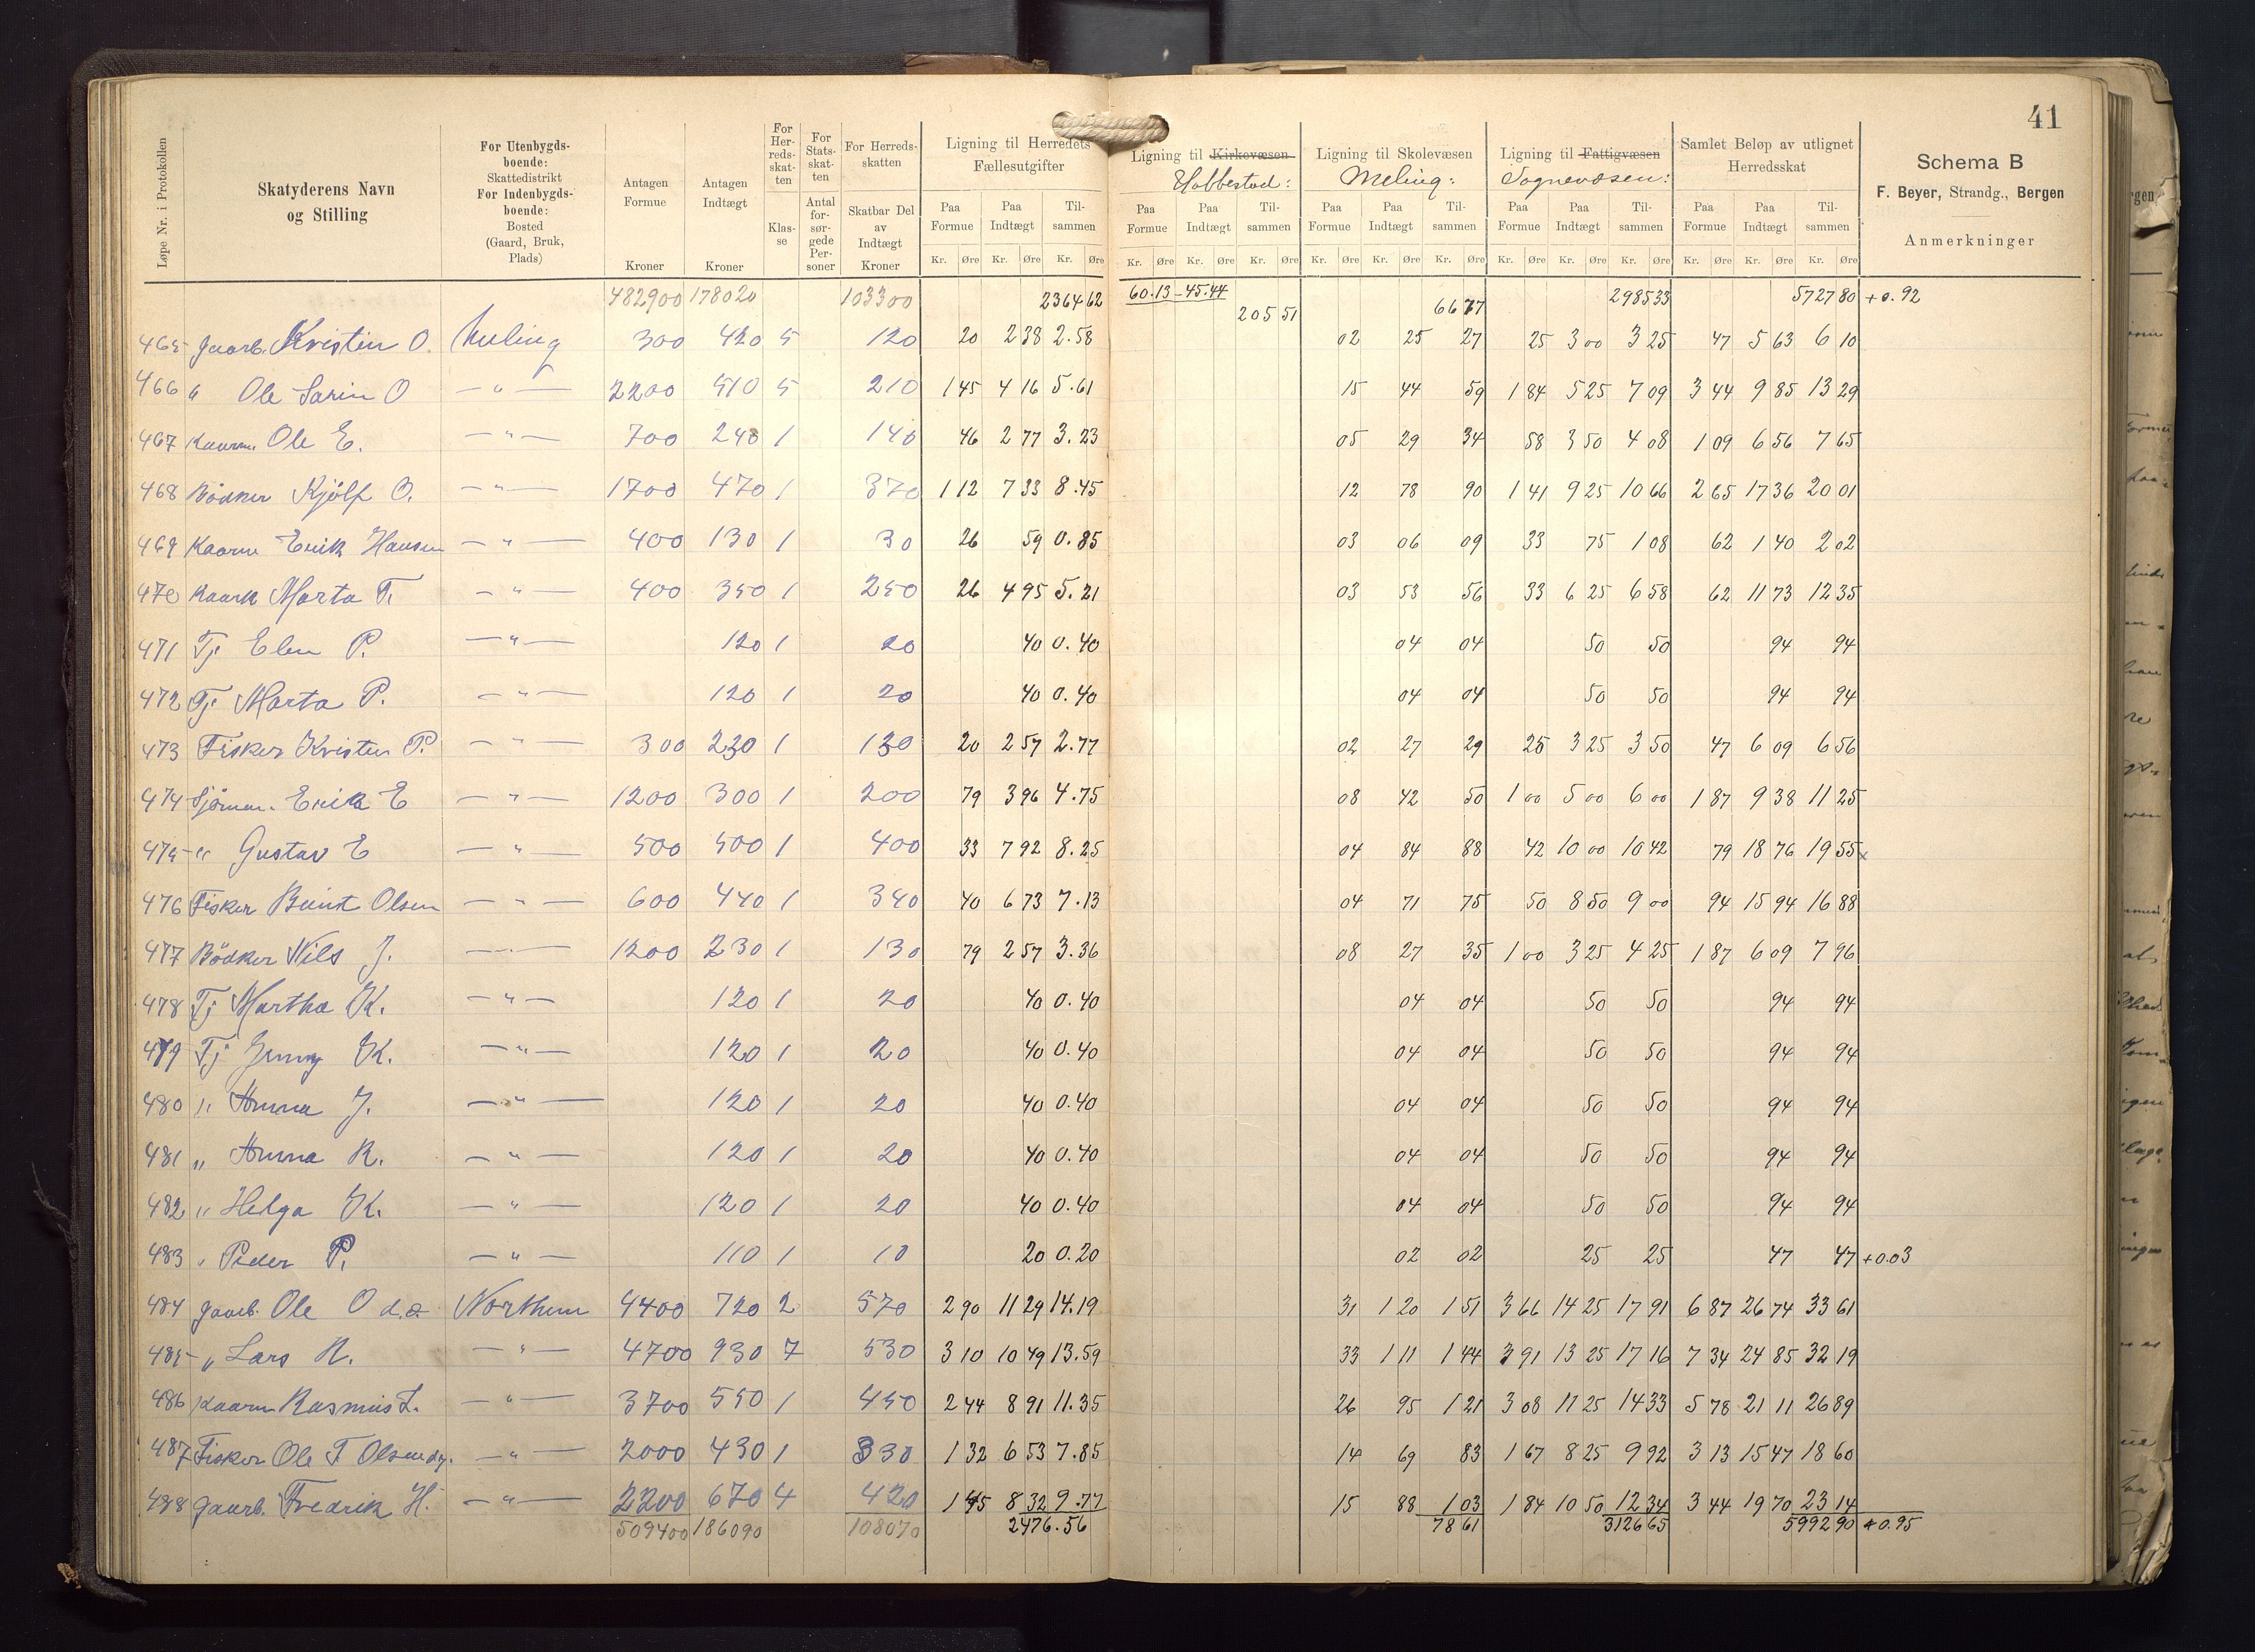 41
Løpe Nr. i Protokollen
Skatyderens Navn og Stilling
For Utenbygds-boende: Skattedistrikt For Indenbygds-boende: Bosted (Gaard, Bruk, Plads)
Antagen Formue Kroner
Antagen Indtægt Kroner
For Her-reds-skat-ten Klas-se
For Stats-skat-ten Antal for-sør-gede Per-soner
For Herreds-skatten Skatbar Del av Indtægt Kroner
Ligning til Herredets Fællesutgifter
Ligning til Kirkevæsen Hobbestad:
Ligning til Skolevæsen Meling:
Ligning til Fattigvæsen Sognevæsen:
Samlet Beløp av utlignet Herredsskat
Schema B
F. Beyer, Strandg., Bergen
Anmerkninger
Paa Formue Paa Indtægt Til-sammen Paa Formue Paa Indtægt Til-sammen Paa Formue Paa Indtægt Til-sammen Paa Formue Paa Indtægt Til-sammen Paa Formue Paa Indtægt Til-sammen
Kr. Øre Kr. Øre Kr. Øre Kr. Øre Kr. Øre Kr. Øre Kr. Øre Kr. Øre Kr. Øre Kr. Øre Kr. Øre Kr. Øre Kr. Øre Kr. Øre Kr. Øre
482900 178020 103300 2364 62 60.13 - 45.44 205 51 66 77 2985 33 5727 80 + 0.92
465 Gaarb. Kristin O. Meling 300 420 5 120 20 2 38 2.58 02 25 27 25 3 00 3 25 47 5 63 6 10
466 " Ole Sarin O — " — 2200 510 5 210 1 45 4 16 5.61 15 44 59 1 84 5 25 7 09 3 44 9 85 13 29
467 Kaarm. Ole E. — " — 700 240 1 140 46 2 77 3.23 05 29 34 58 3 50 4 08 1 09 6 56 7 65
468 Bödker Kjölf O. — " — 1700 470 1 370 1 12 7 33 8.45 12 78 90 1 41 9 25 10 66 2 65 17 36 20 01
469 Kaarm Erik Hansen — " — 400 130 1 30 26 59 0.85 03 06 09 33 75 1 08 62 1 40 2 02
470 Kaark Marta T. — " — 400 350 1 250 26 4 95 5.21 03 53 56 33 6 25 6 58 62 11 73 12 35
471 Tj Elen P. — " — 120 1 20 40 0.40 04 04 50 50 94 94
472 Tj Marta P. — " — 120 1 20 40 0.40 04 04 50 50 94 94
473 Fisker Kristen P. — " — 300 230 1 130 20 2 57 2.77 02 27 29 25 3 25 3 50 47 6 09 6 56
474 Sjömn. Erik E — " — 1200 300 1 200 79 3 96 4.75 08 42 50 1 00 5 00 6 00 1 87 9 38 11 25
475 " Gustav E — " — 500 500 1 400 33 7 92 8.25 04 84 88 42 10 00 10 42 79 18 76 19 55 x
476 Fisker Berint Olsen — " — 600 440 1 340 40 6 73 7.13 04 71 75 50 8 50 9 00 94 15 94 16 88
477 Bödker Nils J. — " — 1200 230 1 130 79 2 57 3.36 08 27 35 1 00 3 25 4 25 1 87 6 09 7 96
478 Tj Martha K. — " — 120 1 20 40 0.40 04 04 50 50 94 94
479 Tj Jenny K. — " — 120 1 20 40 0.40 04 04 50 50 94 94
480 " Anna J. — " — 120 1 20 40 0.40 04 04 50 50 94 94
481 " Anna R. — " — 120 1 20 40 0.40 04 04 50 50 94 94
482 " Helga K. — " — 120 1 20 40 0.40 04 04 50 50 94 94
483 " Peder P. — " — 110 1 10 20 0.20 02 02 25 25 47 47 + 0.03
484 Gaarb. Ole O d.æ Northun 4400 720 2 570 2 90 11 29 14.19 31 1 20 1 51 3 66 14 25 17 91 6 87 26 74 33 61
485 " Lars R. — " — 4700 930 7 530 3 10 10 49 13.59 33 1 11 1 44 3 91 13 25 17 16 7 34 24 85 32 19
486 Kaarm Rasmus L. — " — 3700 550 1 450 2 44 8 91 11.35 26 95 1 21 3 08 11 25 14 33 5 78 21 11 26 89
487 Fisker Ole T Olsen dy. — " — 2000 430 1 330 1 32 6 53 7.85 14 69 83 1 67 8 25 9 92 3 13 15 47 18 60
488 Gaarb. Fredrik H. — " — 2200 670 4 420 1 45 8 32 9.77 15 88 1 03 1 84 10 50 12 34 3 44 19 70 23 14
509400 186090 108070 2476.56 78 61 3126 65 5992 90 + 0.95